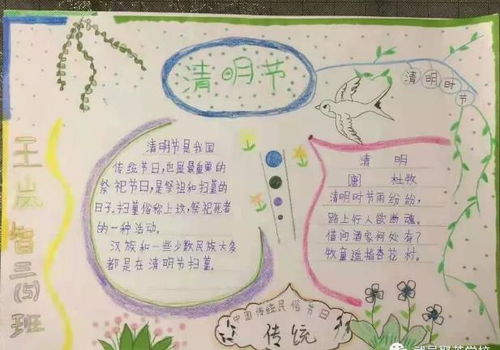 清明节
清明时节
王岚智三(5)班
清明节是我国
传统节日,也是最重要的
祭祀节日,是祭祖和扫墓的
日子.扫墓俗称上坟,祭祀死者
的一种活动。
汉族和一些少数民族大多
都是在清明节扫墓。
清 明
杜牧
清明时节雨纷纷,
路上行人欲断魂。
借问酒家何处有?
牧童遥指杏花村。
中国传统民俗节日
传统